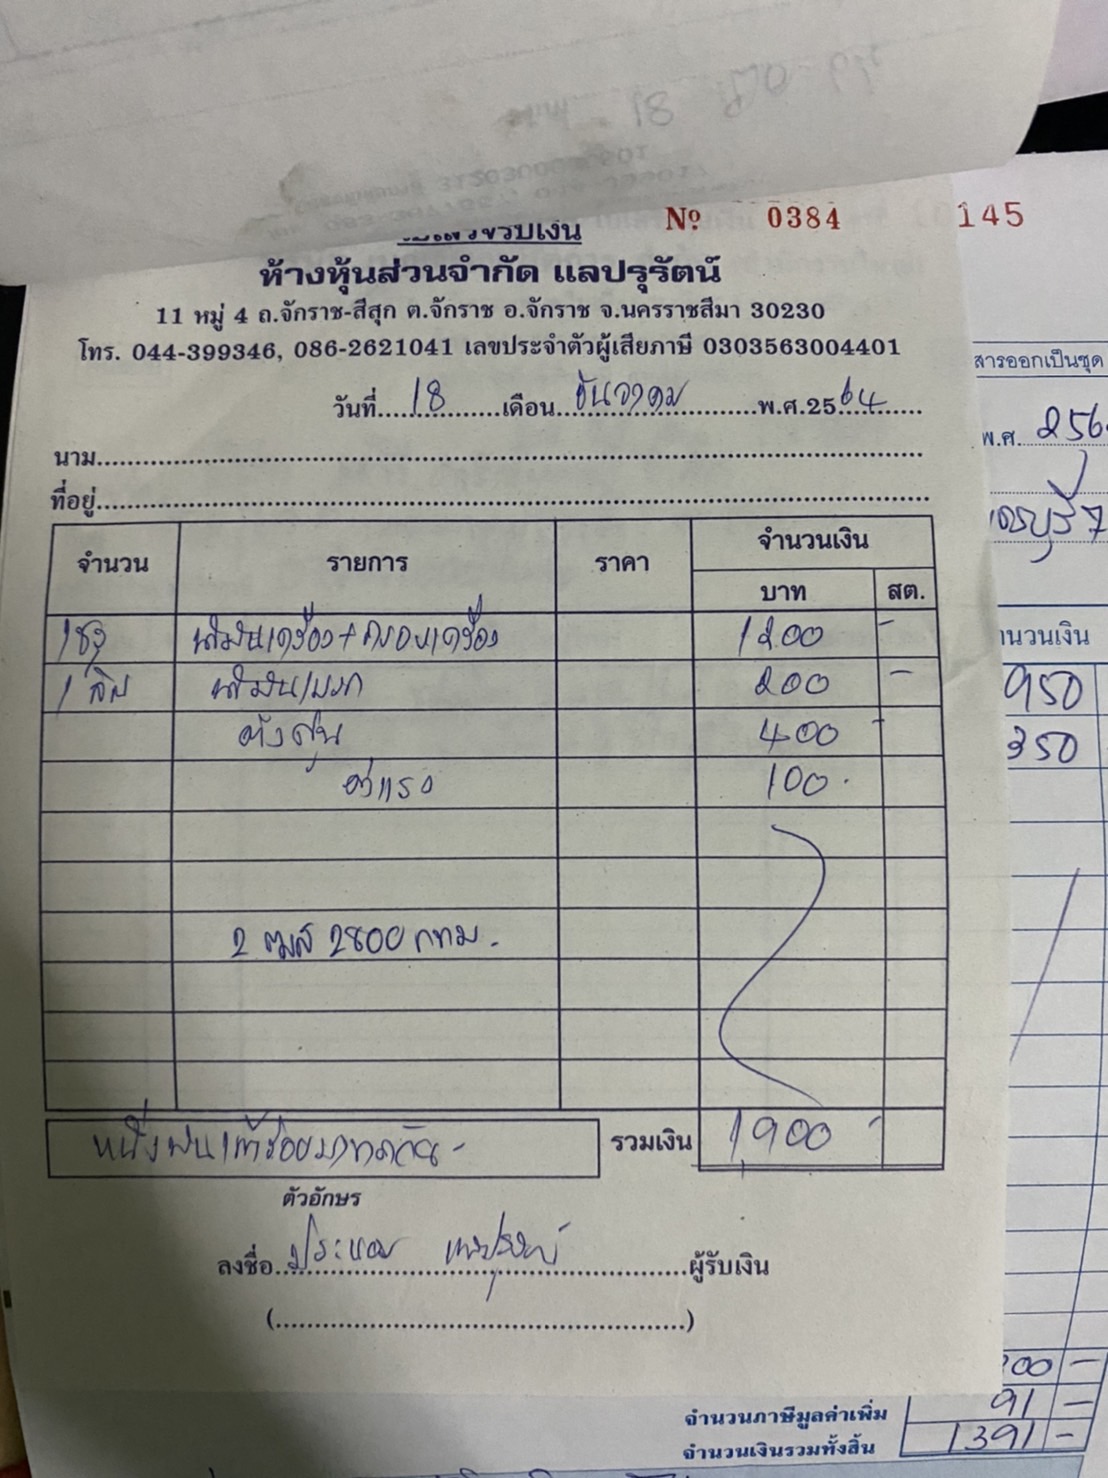 Nº 0384
145
ห้างหุ้นส่วนจำกัด แลปรุรัตน์
11 หมู่ 4 ถ.จักราช-สีสุก ต.จักราช อ.จักราช จ.นครราชสีมา 30230
โทร. 044-399346, 086-2621041 เลขประจำตัวผู้เสียภาษี 0303563004401
สารออกเป็นชุด
วันที่ 18 เดือน ธันวาคม พ.ศ.2564
พ.ศ. 256
นาม
ที่อยู่
จำนวน รายการ ราคา จำนวนเงิน
บาท สต.
นวนเงิน
น้ำมันเครื่อง+กรองเครื่อง 1200 -
1 ลิตร น้ำมันเบรก 200 -
950
400 -
350
ค่าแรง 100 -
2800 กทม.
หนึ่งพันเก้าร้อยบาทถ้วน- รวมเงิน 1,900 -
ตัวอักษร
ลงชื่อ ผู้รับเงิน
(
)
00 -
จำนวนภาษีมูลค่าเพิ่ม 91 -
จำนวนเงินรวมทั้งสิ้น 1391 -